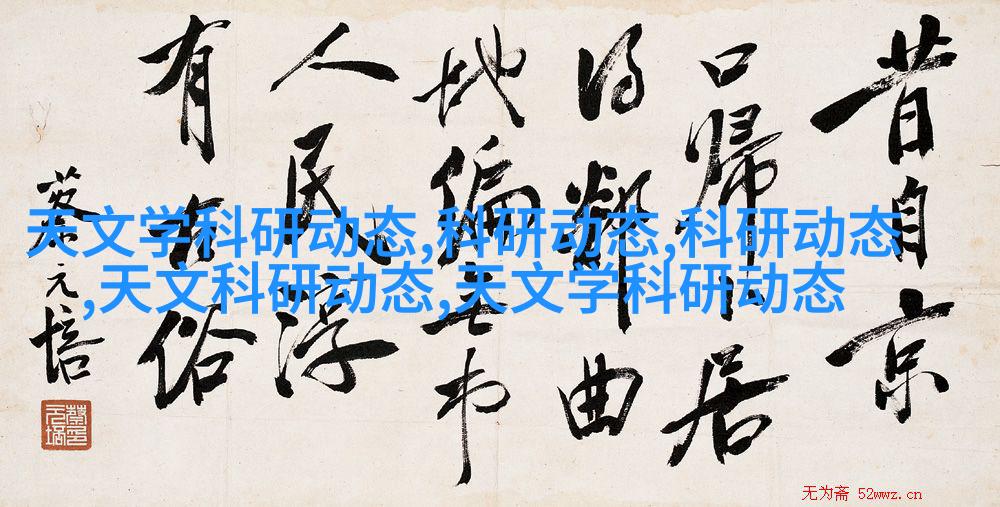 昔自京
口歸卜居
得鄰曲
地偏無市
人民淳
有古俗
蔡元培
天文学科研动态,科研动态,科研动态
,天文科研动态,天文学科研动态
无为斋 52wwz.cn